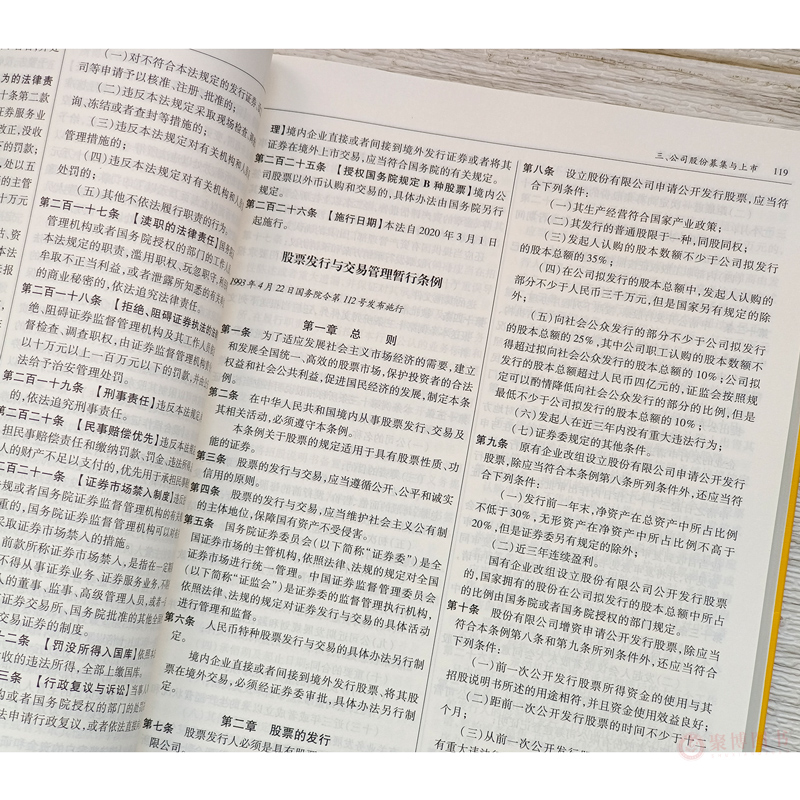 （一）对不符合本法规定的发行证券、
司等申请予以核准、注册、批准的；
（二）违反本法规定采取现场检查、
询、冻结或者查封等措施的；
（三）违反本法规定对有关机构和人
管理措施的；
（四）违反本法规定对有关机构和人员
处罚的；
（五）其他不依法履行职责的行为。
第二百一十七条 【渎职的法律责任】国务
管理机构或者国务院授权的部门的工作人
本法规定的职责，滥用职权、玩忽职守，利
牟取不正当利益，或者泄露所知悉的有关
的商业秘密的，依法追究法律责任。
第二百一十八条 【拒绝、阻碍证券执法的
绝、阻碍证券监督管理机构及其工作人员
督检查、调查职权，由证券监督管理机构
以十万元以上一百万元以下的罚款，并由
法给予治安管理处罚。
第二百一十九条 【刑事责任】违反本法规定
的，依法追究刑事责任。
第二百二十条 【民事赔偿优先】违反本法规
担民事赔偿责任和缴纳罚款、罚金、违法所
人的财产不足以支付的，优先用于承担民事
二百二十一条 【证券市场禁入制度】违反
规或者国务院证券监督管理机构的有关
重的，国务院证券监督管理机构可以对
采取证券市场禁入的措施。
前款所称证券市场禁入，是指在一定
不得从事证券业务、证券服务业务，不
人的董事、监事、高级管理人员，或者一
证券交易所、国务院批准的其他全
交易证券的制度。
十二条 【罚没所得入国库】依照本
收的违法所得，全部上缴国库。
三条 【行政复议与诉讼】当事人
机构或者国务院授权的部门的处
法申请行政复议，或者依法直接
理】境内企业直接或者间接到境外发行证券或者将其
证券在境外上市交易，应当符合国务院的有关规定。
第二百二十五条 【授权国务院规定 B 种股票】境内公
司股票以外币认购和交易的，具体办法由国务院另行
规定。
第二百二十六条 【施行日期】本法自 2020 年 3 月 1 日
起施行。
股票发行与交易管理暂行条例
1993 年 4 月 22 日国务院令第 112 号发布施行
第一章 总 则
第一条 为了适应发展社会主义市场经济的需要，建立
和发展全国统一、高效的股票市场，保护投资者的合法
权益和社会公共利益，促进国民经济的发展，制定本条
例。
第二条 在中华人民共和国境内从事股票发行、交易及
其相关活动，必须遵守本条例。
本条例关于股票的规定适用于具有股票性质、功
能的证券。
第三条 股票的发行与交易，应当遵循公开、公平和诚实
信用的原则。
第四条 股票的发行与交易，应当维护社会主义公有制
的主体地位，保障国有资产不受侵害。
第五条 国务院证券委员会（以下简称“证券委”）是全
国证券市场的主管机构，依照法律、法规的规定对全国
证券市场进行统一管理。中国证券监督管理委员会
（以下简称“证监会”）是证券委的监督管理执行机构，
依照法律、法规的规定对证券发行与交易的具体活动
进行管理和监督。
第六条 人民币特种股票发行与交易的具体办法另行制
定。
境内企业直接或者间接到境外发行股票、将其股
票在境外交易，必须经证券委审批，具体办法另行制
定。
第二章 股票的发行
第七条 股票发行人必须是具有股
有限公司。
三、公司股份募集与上市 119
第八条 设立股份有限公司申请公开发行股票，应当符
合下列条件：
（一）其生产经营符合国家产业政策；
（二）其发行的普通股限于一种，同股同权；
（三）发起人认购的股本数额不少于公司拟发行
的股本总额的 35%；
（四）在公司拟发行的股本总额中，发起人认购的
部分不少于人民币三千万元，但是国家另有规定的除
外；
（五）向社会公众发行的部分不少于公司拟发行
的股本总额的 25%，其中公司职工认购的股本数额不
得超过拟向社会公众发行的股本总额的 10%；公司拟
发行的股本总额超过人民币四亿元的，证监会按照规
定可以酌情降低向社会公众发行的部分的比例，但是
最低不少于公司拟发行的股本总额的 10%；
（六）发起人在近三年内没有重大违法行为；
（七）证券委规定的其他条件。
第九条 原有企业改组设立股份有限公司申请公开发行
股票，除应当符合本条例第八条所列条件外，还应当符
合下列条件：
（一）发行前一年末，净资产在总资产中所占比例
不低于 30%，无形资产在净资产中所占比例不高于
20%，但是证券委另有规定的除外；
（二）近三年连续盈利。
国有企业改组设立股份有限公司公开发行股票
的，国家拥有的股份在公司拟发行的股本总额中所占
的比例由国务院或者国务院授权的部门规定。
第十条 股份有限公司增资申请公开发行股票，除应当
符合本条例第八条和第九条所列条件外，还应当符合
下列条件：
（一）前一次公开发行股票所得资金的使用与其
招股说明书所述的用途相符，并且资金使用效益良好；
（二）距前一次公开发行股票的时间不少于十
个月；
（三）从前一次公开发行股票
有重大违法